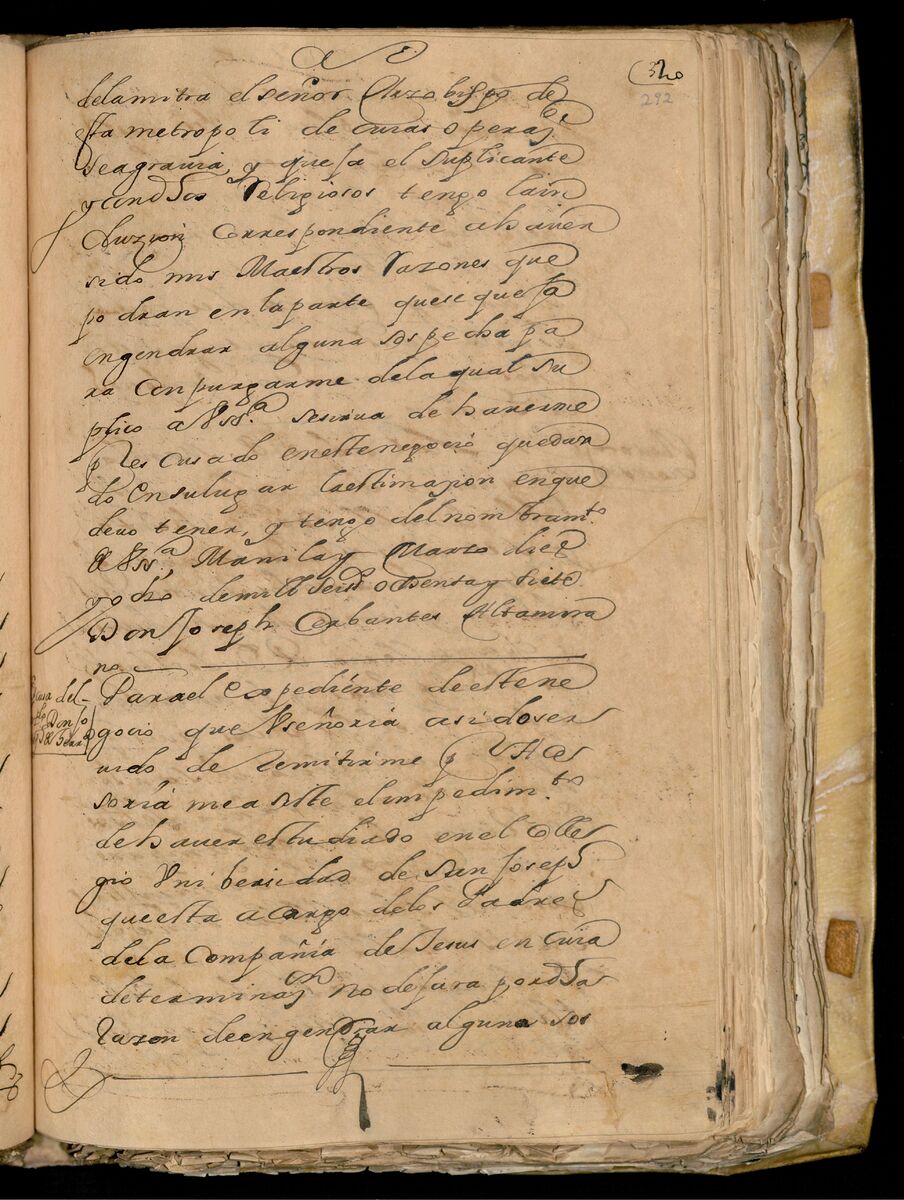 520
292
delamitra el señor Arzobispo de
sta metropoli de cuias operas.es
seagrauia, y quesa el suplicante
y condhos Religiosos tengo lain
cluzion correspondiente a hauer
sido mis Maestros Razones que
podran en la parte quese quesa
engendrar alguna sospecha pa
ra conpurgarme dela qual su
plico a VSS.a sesirua de hauerme
p Rescusado eneste negocio quedan
do ensulugar la estimasion enque
deuo tener, y tengo del nombram.to
de VSS.a, Manila y Marzo diez
y ocho demill seis.s ochenta y siete
Don Joseph Cerbantes Altamira
no
Para el expediente de este ne
gocio que Vseñoria asidoser
uido de Remitirme p VAces
soria me asiste el impedim.to
de hauer estudiado en el Colle
gio Vnibersidad de San Joseph
que esta a cargo delos Padres
dela Compañia de Jesus en cuia
determinas.on no desara por dha
Razon de engendrar alguna sos
Escusa del
Don Jo